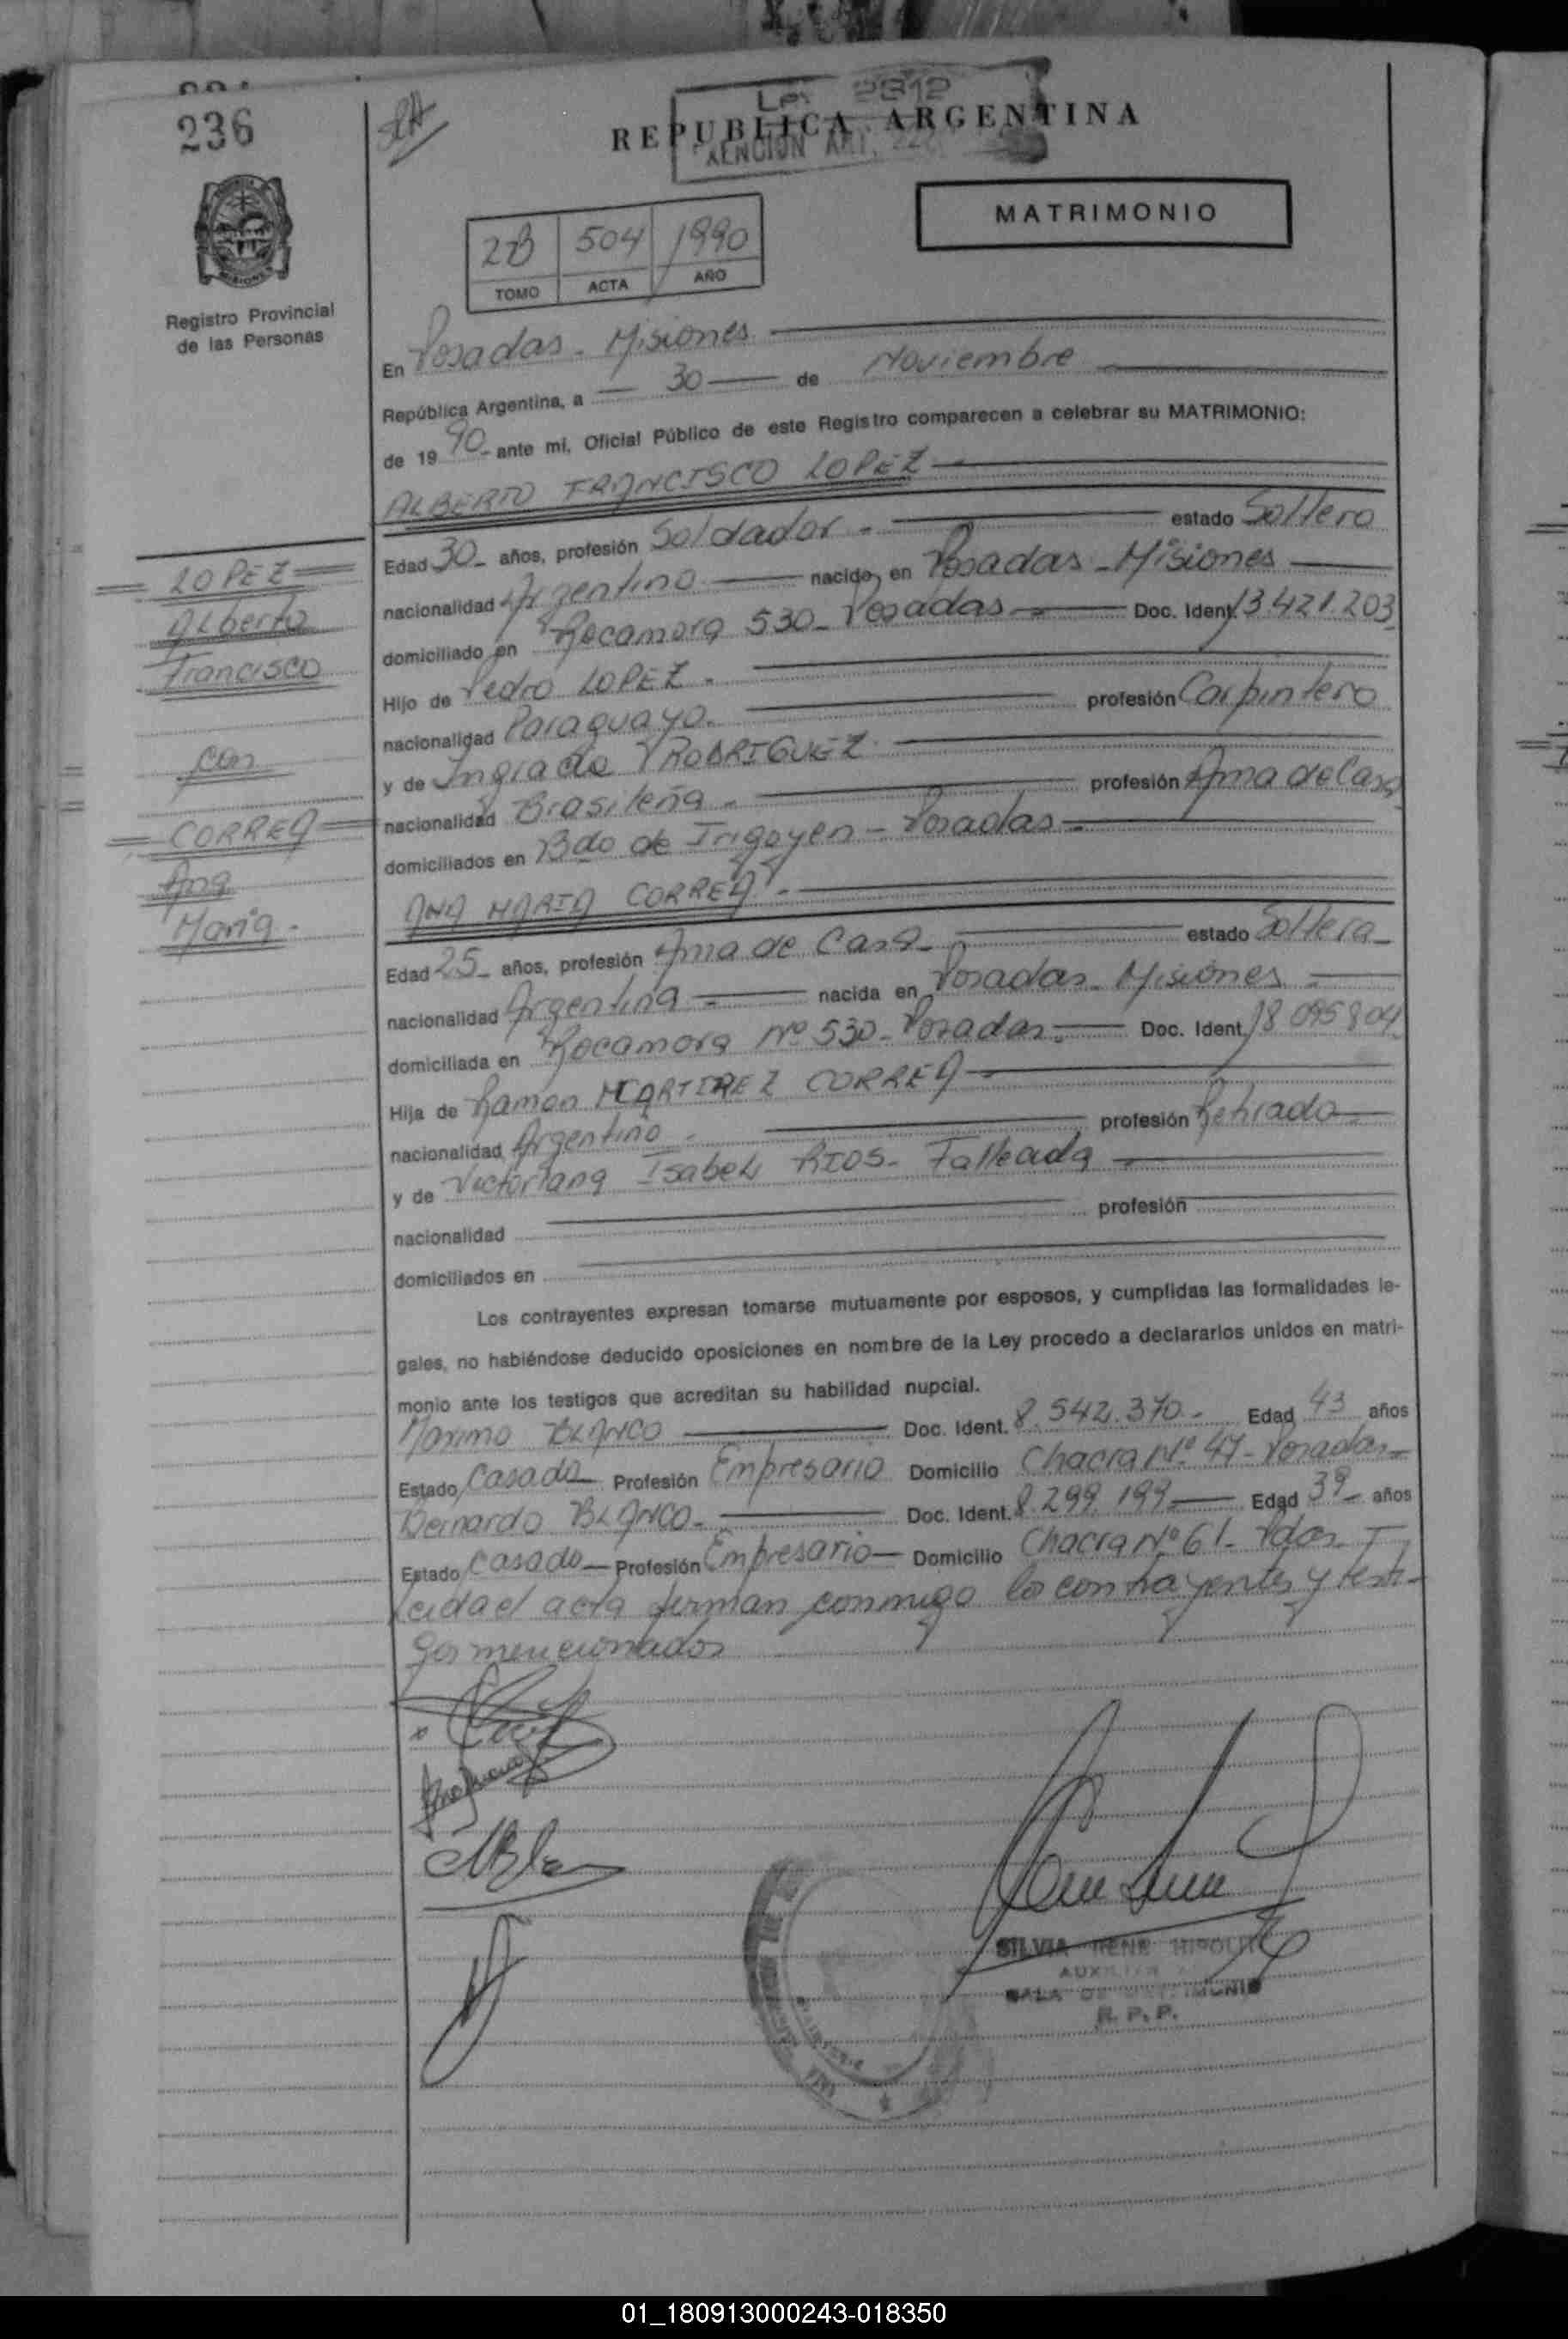 236
Ley 2312
REPUBLICA ARGENTINA
MATRIMONIO
2B 504 1990
TOMO ACTA AÑO
Registro Provincial
de las Personas
En Posadas - Misiones
República Argentina, a 30 de Noviembre
de 1990 ante mi, Oficial Público de este Registro comparecen a celebrar su MATRIMONIO:
ALBERTO FRANCISCO LOPEZ
Edad 30 años, profesión Soldador - estado Soltero
nacionalidad Argentino nacido en Posadas - Misiones
domiciliado en Rocamora 530 - Posadas Doc. Ident. 13.421.203
Hijo de Pedro LOPEZ.
nacionalidad Paraguayo. profesión Carpintero
y de Ingracia RODRIGUEZ
nacionalidad Brasileña - profesión Ama de Casa
domiciliados en Bdo de Irigoyen - Posadas -
ANA MARIA CORREA -
Edad 25 años, profesión Ama de Casa - estado Soltera -
nacionalidad Argentina - nacida en Posadas - Misiones -
domiciliada en Rocamora Nº 530 - Posadas - Doc. Ident. 18 095 804
Hija de Ramon CORREA
nacionalidad Argentino - profesión Retirado
y de Victoriana Isabel RIOS - Fallecida
nacionalidad profesión
domiciliados en
Los contrayentes expresan tomarse mutuamente por esposos, y cumplidas las formalidades le-
gales, no habiéndose deducido oposiciones en nombre de la Ley procedo a declararlos unidos en matri-
monio ante los testigos que acreditan su habilidad nupcial.
Maximo BLANCO Doc. Ident. 8.542.370 - Edad 43 años
Estado Casado Profesión Empresario Domicilio Chacra Nº 47 - Posadas
Bernardo BLANCO - Doc. Ident. 8.299.199 Edad 39 años
Estado Casado Profesión Empresario Domicilio Chacra Nº 61 - Pdas.
Leida el acta firman conmigo los contrayentes y testi-
gos mencionados
LOPEZ
Alberto
Francisco
con
CORREA
Ana
Maria -
SILVIA IRENE HIPOLITO
AUXILIAR
SALA DE MATRIMONIO
R. P. P.
01_180913000243-018350